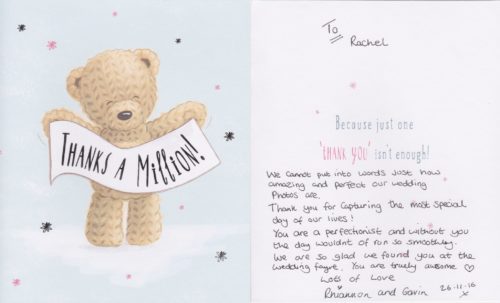 THANKS A MILLION!
To
Rachel
Because just one
'THANK YOU' isn't enough!
We cannot put into words just how
amazing and perfect our wedding
Photos are.
Thank you for capturing the most special
day of our lives!
You are a perfectionist and without you
the day wouldnt of run so smoothley.
We are so glad we found you at the
wedding fayre. You are truely awesome ♡
Lots of Love
Rhiannon and Gavin 26-11-16
x